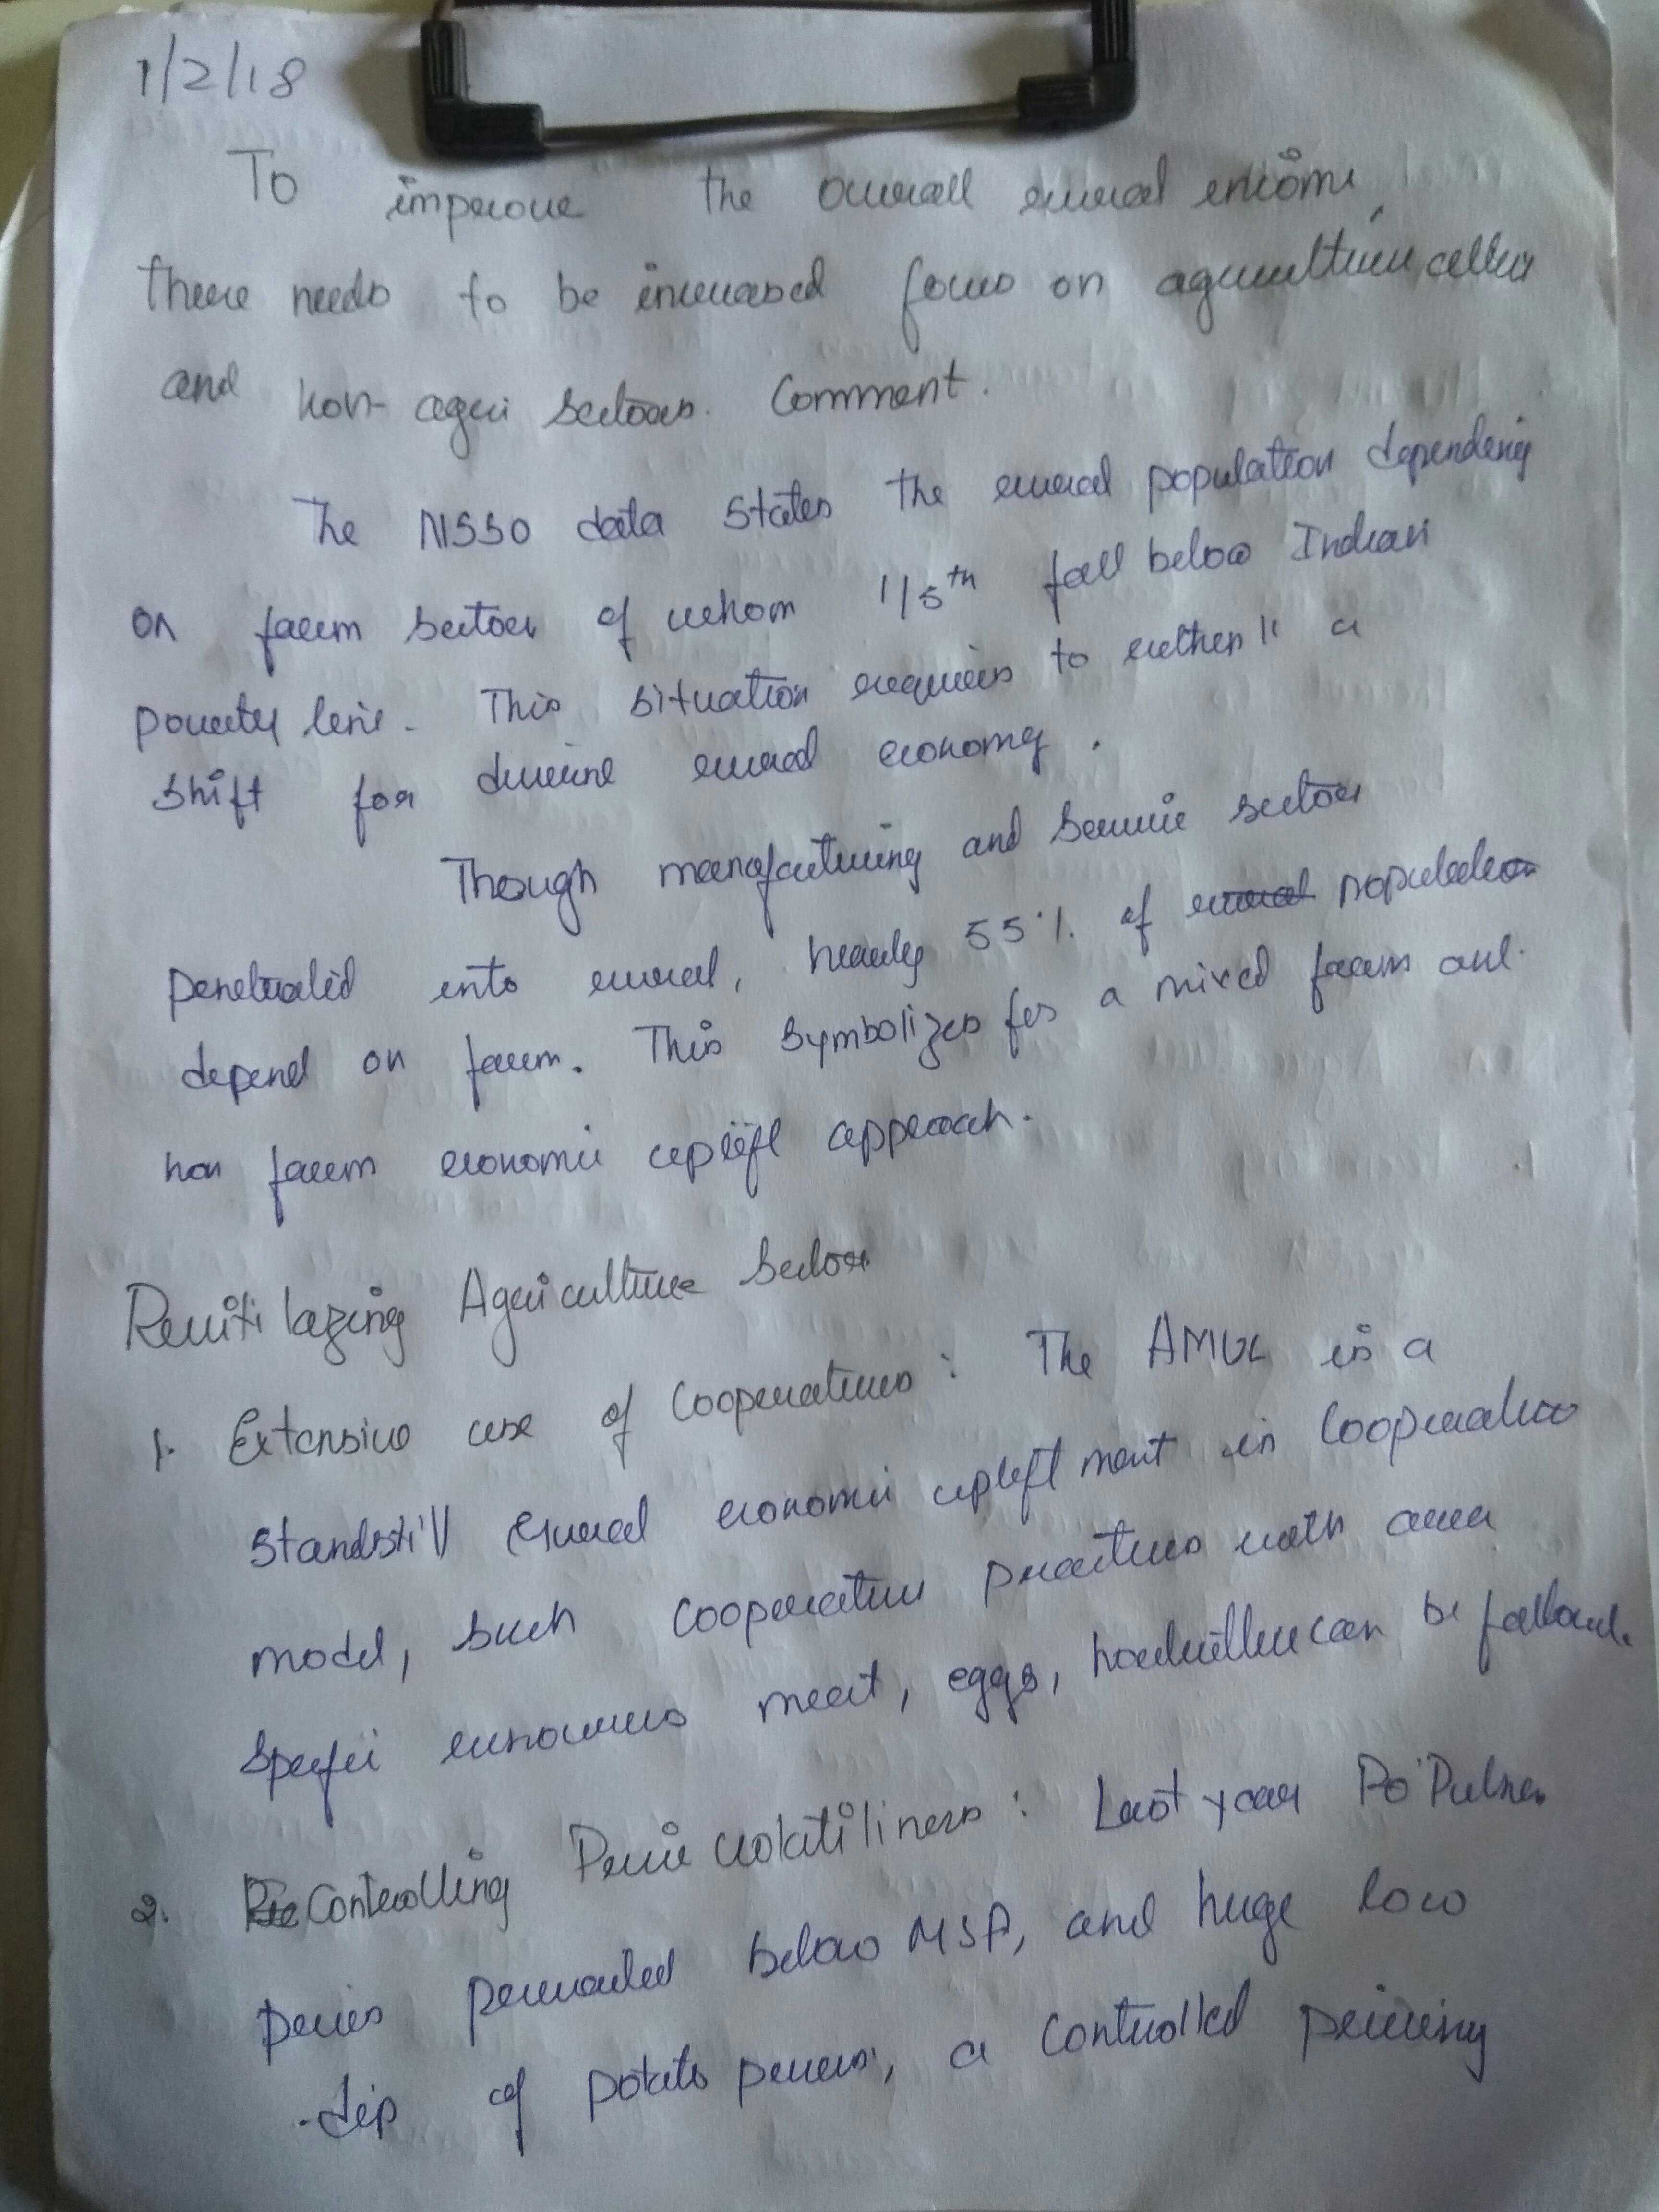 1/2/18
To improve the overall rural income,
there needs to be increased focus on agriculture, allied
and non-agri sectors. Comment.
The NSSO data states the rural population depending
on farm sector of whom 1/5th fall below Indian
poverty line. This situation requires to a
shift for diverse rural economy.
Though manafacturing and service sector
penetrated into rural, nearly 55% of population
depend on farm. This symbolizes for a mixed farm and
non farm economic uplift approach.
Revitilazing Agriculture Sector
1. Extensive use of Cooperatives: The AMUL is a
standstill rural economic upliftment in Cooperative
model, such cooperative practices with area
specific resources meat, eggs, can be followed.
2. Controlling Price volatiliness: Last year Pulses
prices prevailed below MSP, and huge low
dip of potato prices, a controlled pricing